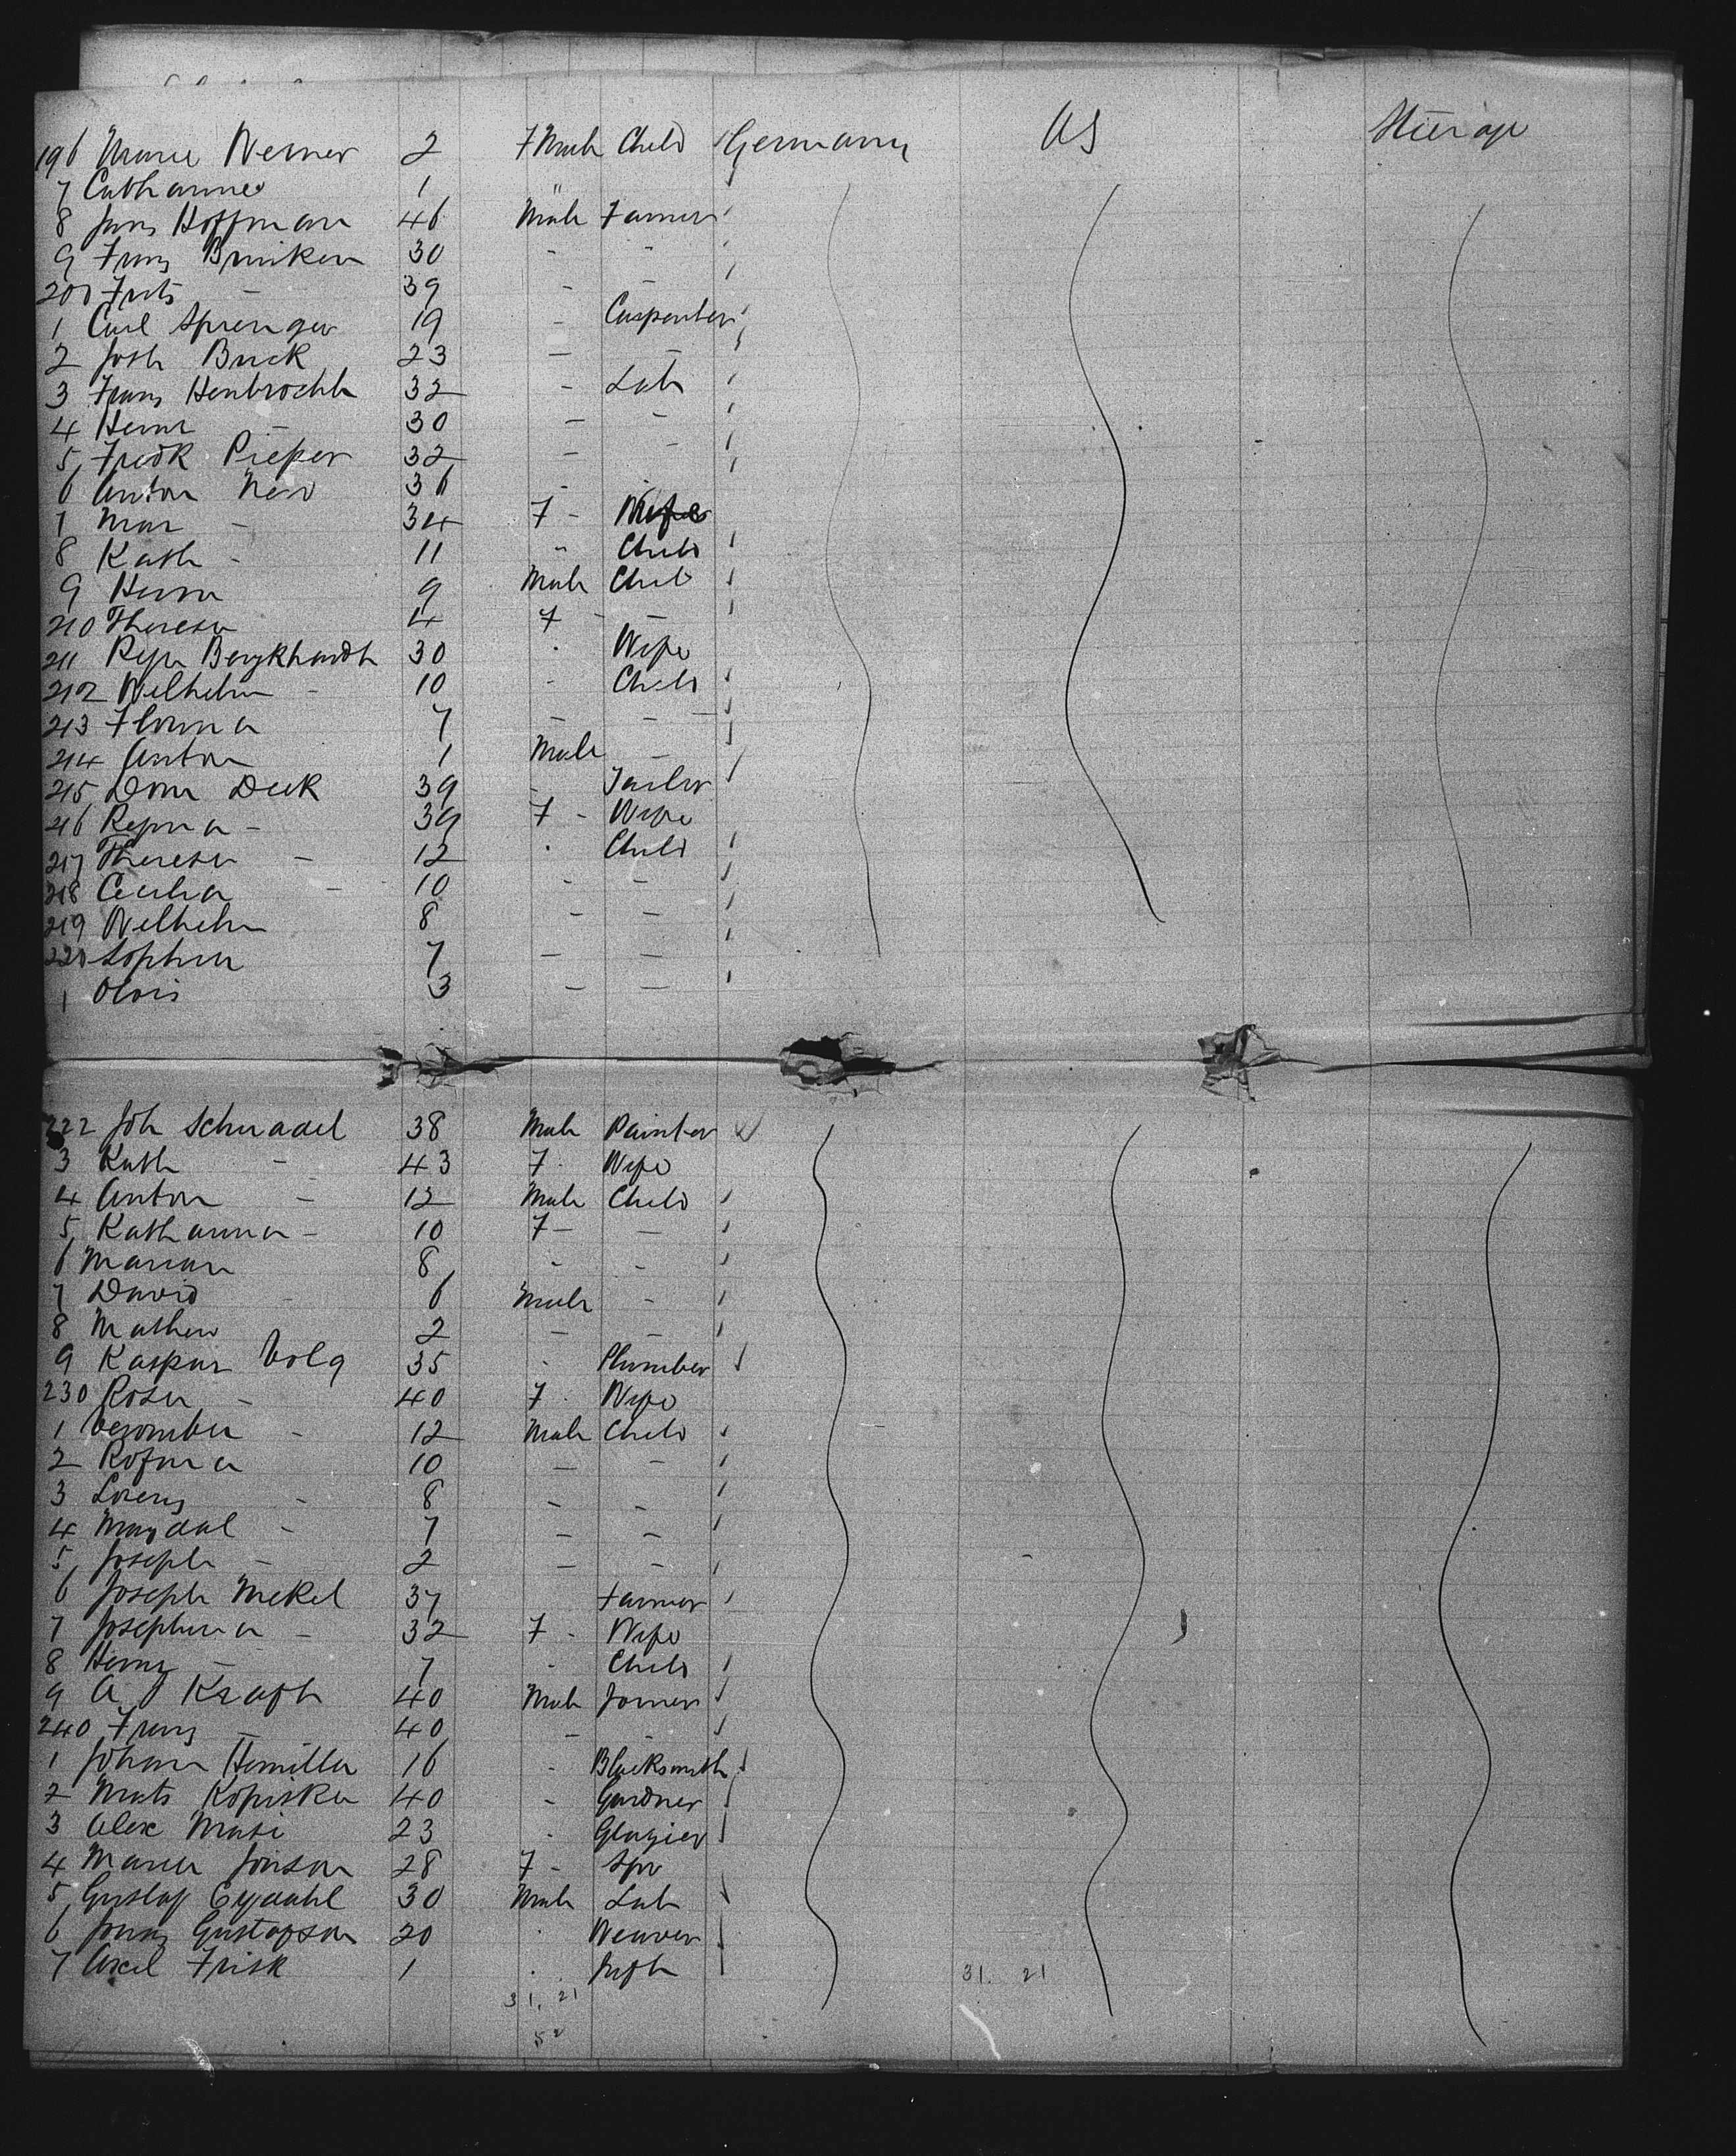 196 Marie Werner 2 F Male Child Germany US Steerage
7 Catharine 1 "
8 Jans Hoffman 46 Male Farmer
9 Franz Brinker 30 - -
200 Frits - 39 - -
1 Carl Sprenger 19 - Carpenter
2 Josh Buck 23 - -
3 Franz Henbrochh 32 - Lab
4 Henr - 30 - -
5 Fredk Pieper 32 - -
6 Anton Neo 36 - -
7 Mar - 34 F - Wife
8 Kath - 11 " Child
9 Herm 9 Male Child
210 Theresa 4 F - -
211 Bergkhardh 30 . Wife
212 Wilhelm - 10 - Child
213 7 - -
214 Anton 1 Male -
215 Dom Deck 39 - Tailor
216 Regina - 39 F - Wife
217 Theresa - 12 . Child
218 Cecilia - 10 - -
219 Wilhelm 8 - -
220 Sophia 7 - -
1 Olois 3 - -
222 Joh Schnadel 38 Male Painter
3 Kath - 43 F . Wife
4 Anton - 12 Male Child
5 Katharina - 10 F - -
6 Marian 8 - -
7 David - 6 Male -
8 Mathew 2 - -
9 Kaspar Volg 35 . Plumber
230 Rosa - 40 F . Wife
1 - 12 Male Child
2 10 - -
3 Lorenz - 8 - -
4 Magdal - 7 - -
5 Joseph - 2 - -
6 Joseph Mekel 37 Farmer
7 Josephina - 32 F - Wife
8 Henr - 7 . Child
9 A J Krafth 40 Male Joiner
240 Franz - 40 - -
1 Johann Hemiller 16 - Blacksmith
2 Mats Kopiska 40 - Gardner
3 Alex Masi 23 . Glazier
4 Maria Jonson 28 F - Spr
5 Gustaf Egdahl 30 Male Lab
6 Jonas Gustafson 20 . Weaver
7 Axel Frisk 1 . Infh
31. 21 31. 21
52